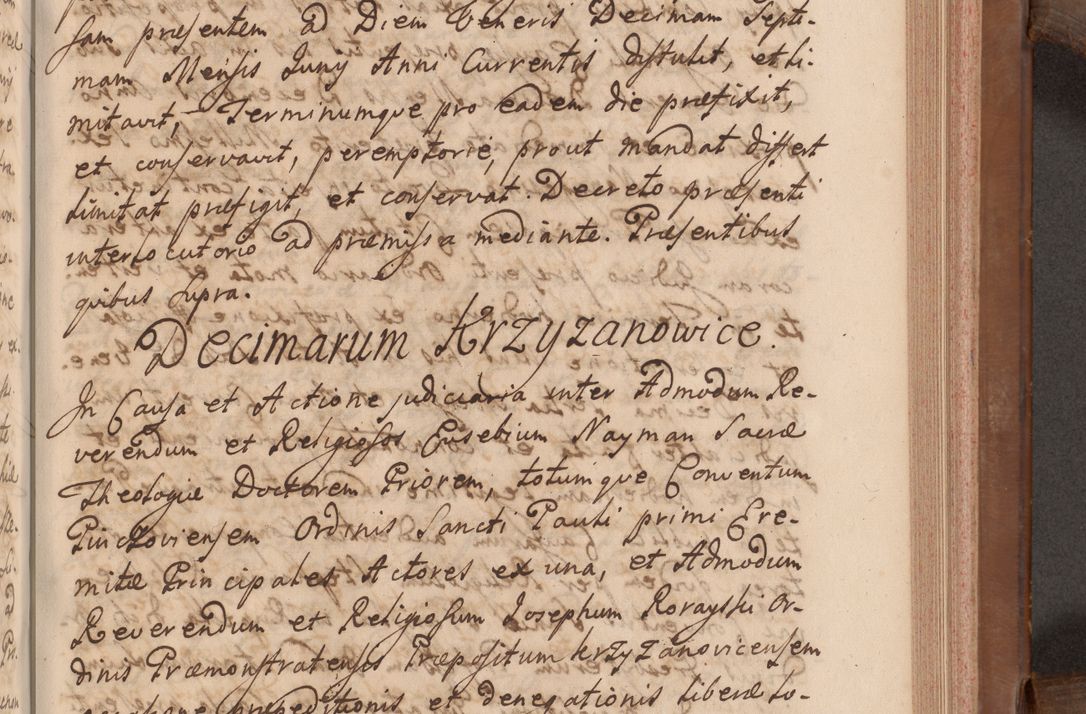 sam præsentem ad Diem Veneris Decimam Septi-
mam Mensis Junÿ Anni Currentis distulit, et li-
mitavit, Terminumque pro eadem die præfixit,
et conservavit, peremptorie, prout mandat differt
limitat præfigit, et conservat. Decreto præsenti
interlocutorio ad præmissa mediante. Præsentibus
quibus supra.
Decimarum Krzyzanowice.
In Causa et Actione judiciaria inter Admodum Re-
verendum et Religiosos Eusebium Nayman Sacræ
Theologiæ Doctorem Priorem, totumque Conventum
Pinczoviensem Ordinis Sancti Pauli primi Ere-
mitæ Principales Actores ex una, et Admodum
Reverendum et Religiosum Josephum Rorayski Or-
dinis Præmonstratensis Præpositum Krzyzanovicensem
præpeditionis et denegationis liberæ lo-